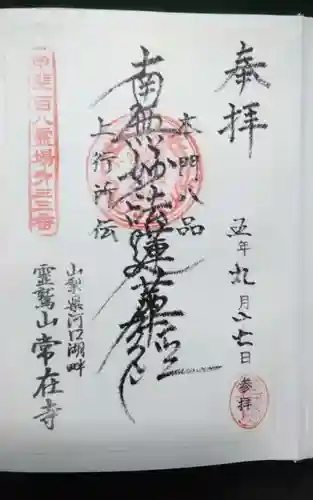 奉拝
五年九月二十七日
参拝
本門八品
南無妙法蓮華経
上行所伝
山梨県河口湖畔
霊鷲山常在寺
甲斐百八霊場第三三番